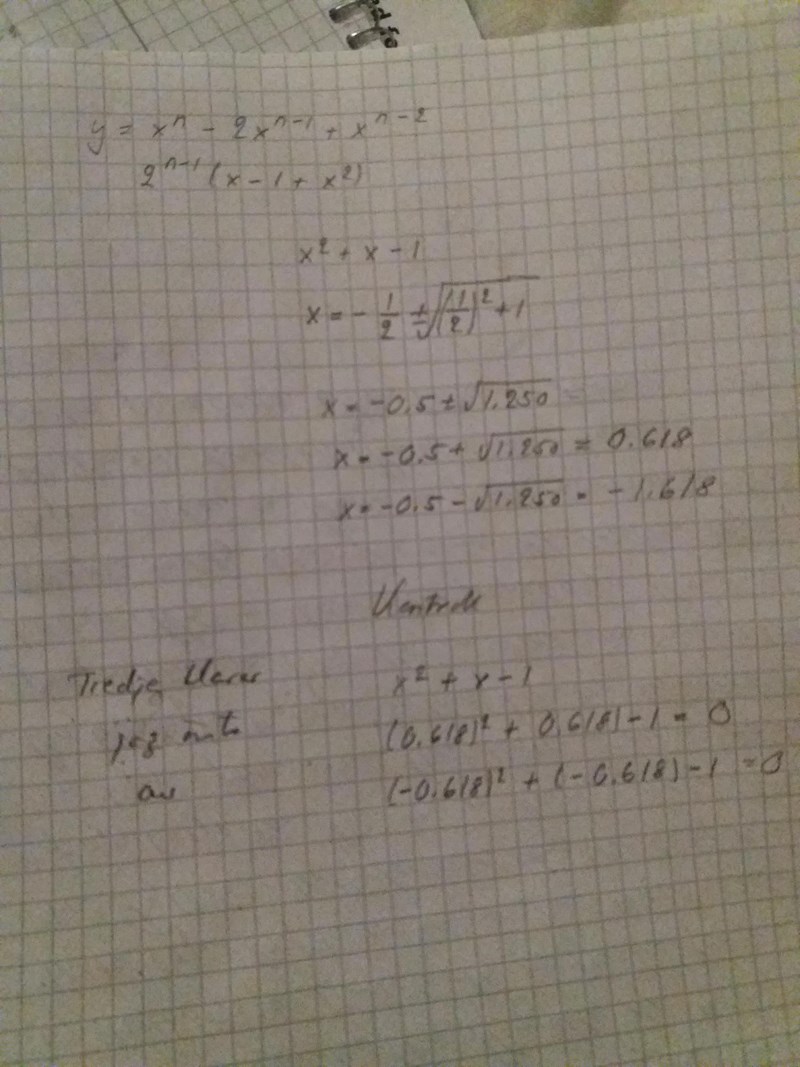 y = xⁿ - 2xⁿ⁻¹ + xⁿ⁻²
2ⁿ⁻¹(x - 1 + x²)
x² + x - 1
x = - 1/2 ± √((1/2)² + 1)
x = -0.5 ± √1.250
x = -0.5 + √1.250 = 0.618
x = -0.5 - √1.250 = -1.618
Kontroll
Tredje klarar
x² + x - 1
jag inte
(0.618)² + 0.618) - 1 = 0
av
(-0.618)² + (-0.618) - 1 = 0